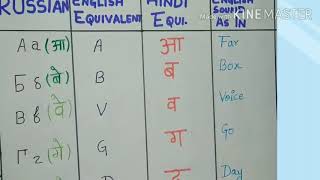 RUSSIAN ENGLISH EQUIVALENT HINDI EQUI. ENGLISH SOUND AS IN
Made with KINEMASTER
А а (आ) A आ Far
Б б (बे) B ब Box
В в (वे) V व Voice
Г г (गे) G ग Go
Day